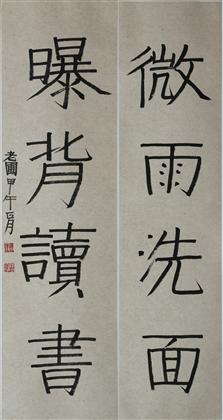 微雨洗面
曝背讀書
老圃甲午四月